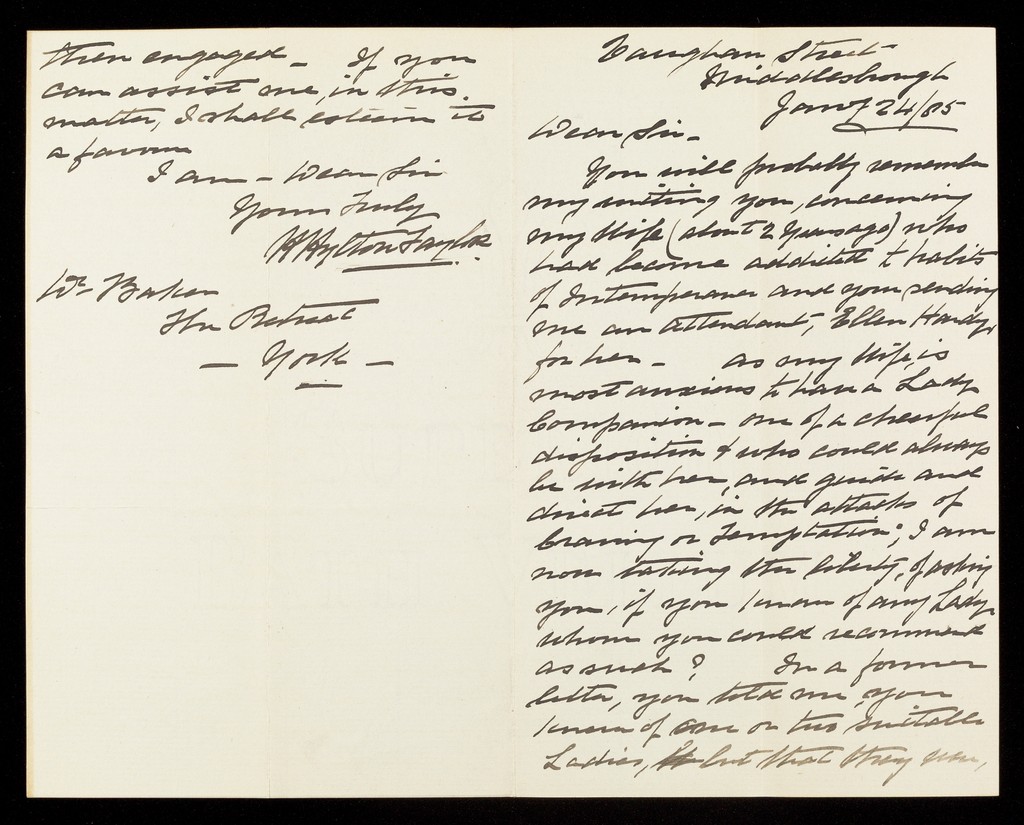 Vaughan Street
Middlesbrough
Jany 24/85
Dear Sir -
You will probably remember
my writing you, concerning
my Wife (about 2 Years ago) who
had become addicted to habits
of Intemperance and your sending
me an attendant, Ellen Hardy,
for her - as my Wife, is
most anxious to have a Lady
Companion - one of a cheerful
disposition & who could always
be with her, and guide and
direct her, in the attacks of
Craving or Temptation; I am
now taking the liberty, of asking
you, if you know of any Lady,
whom you could recommend
as such? In a former
letter, you told me, you
knew of one or two suitable
Ladies, but that they were,
then engaged - If you
can assist me, in this
matter, I shall esteem it
a favour
I am - Dear Sir
Yours Truly
H Hylton Taylor
Dr Baker
The Retreat
- York -